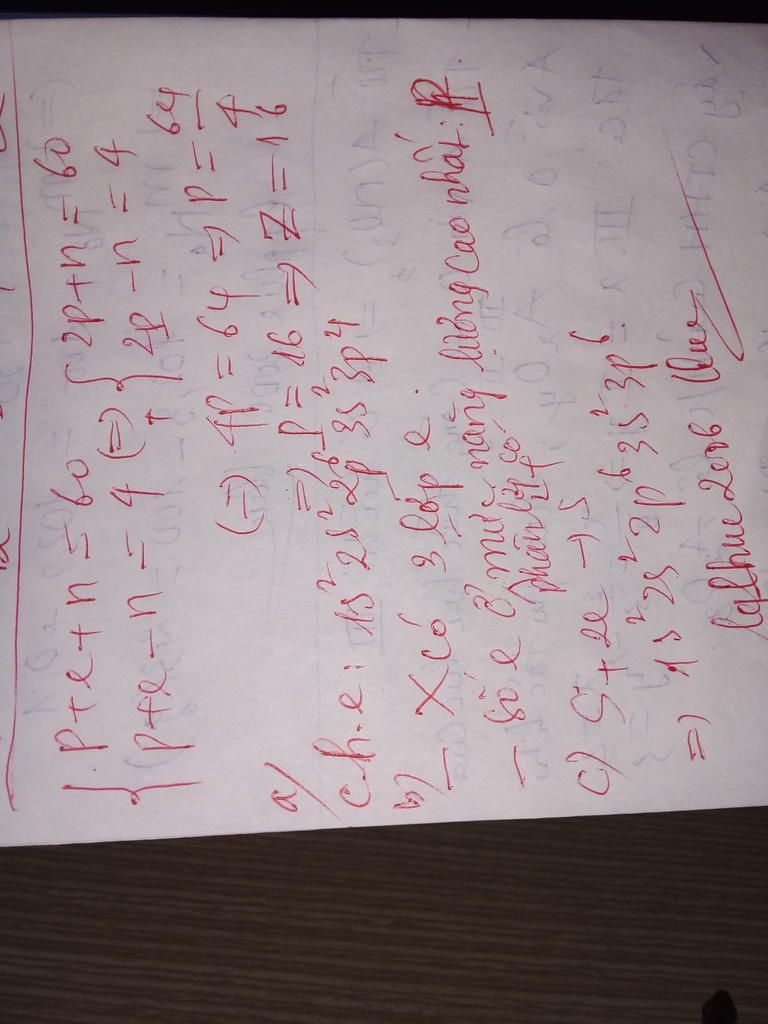 { p + e + n = 60 (=) { 2p + n = 60
{ p + e - n = 4 { 2p - n = 4
(=) 4p = 64 => p = 64/4
=> p = 16 => Z = 16
a/
c.h.e: 1s² 2s² 2p⁶ 3s² 3p⁴
b) - X có 3 lớp e.
- Số e ở mức năng lượng cao nhất:
phân lớp có
c) S + 2e →
=> 1s² 2s² 2p⁶ 3s² 3p⁶.